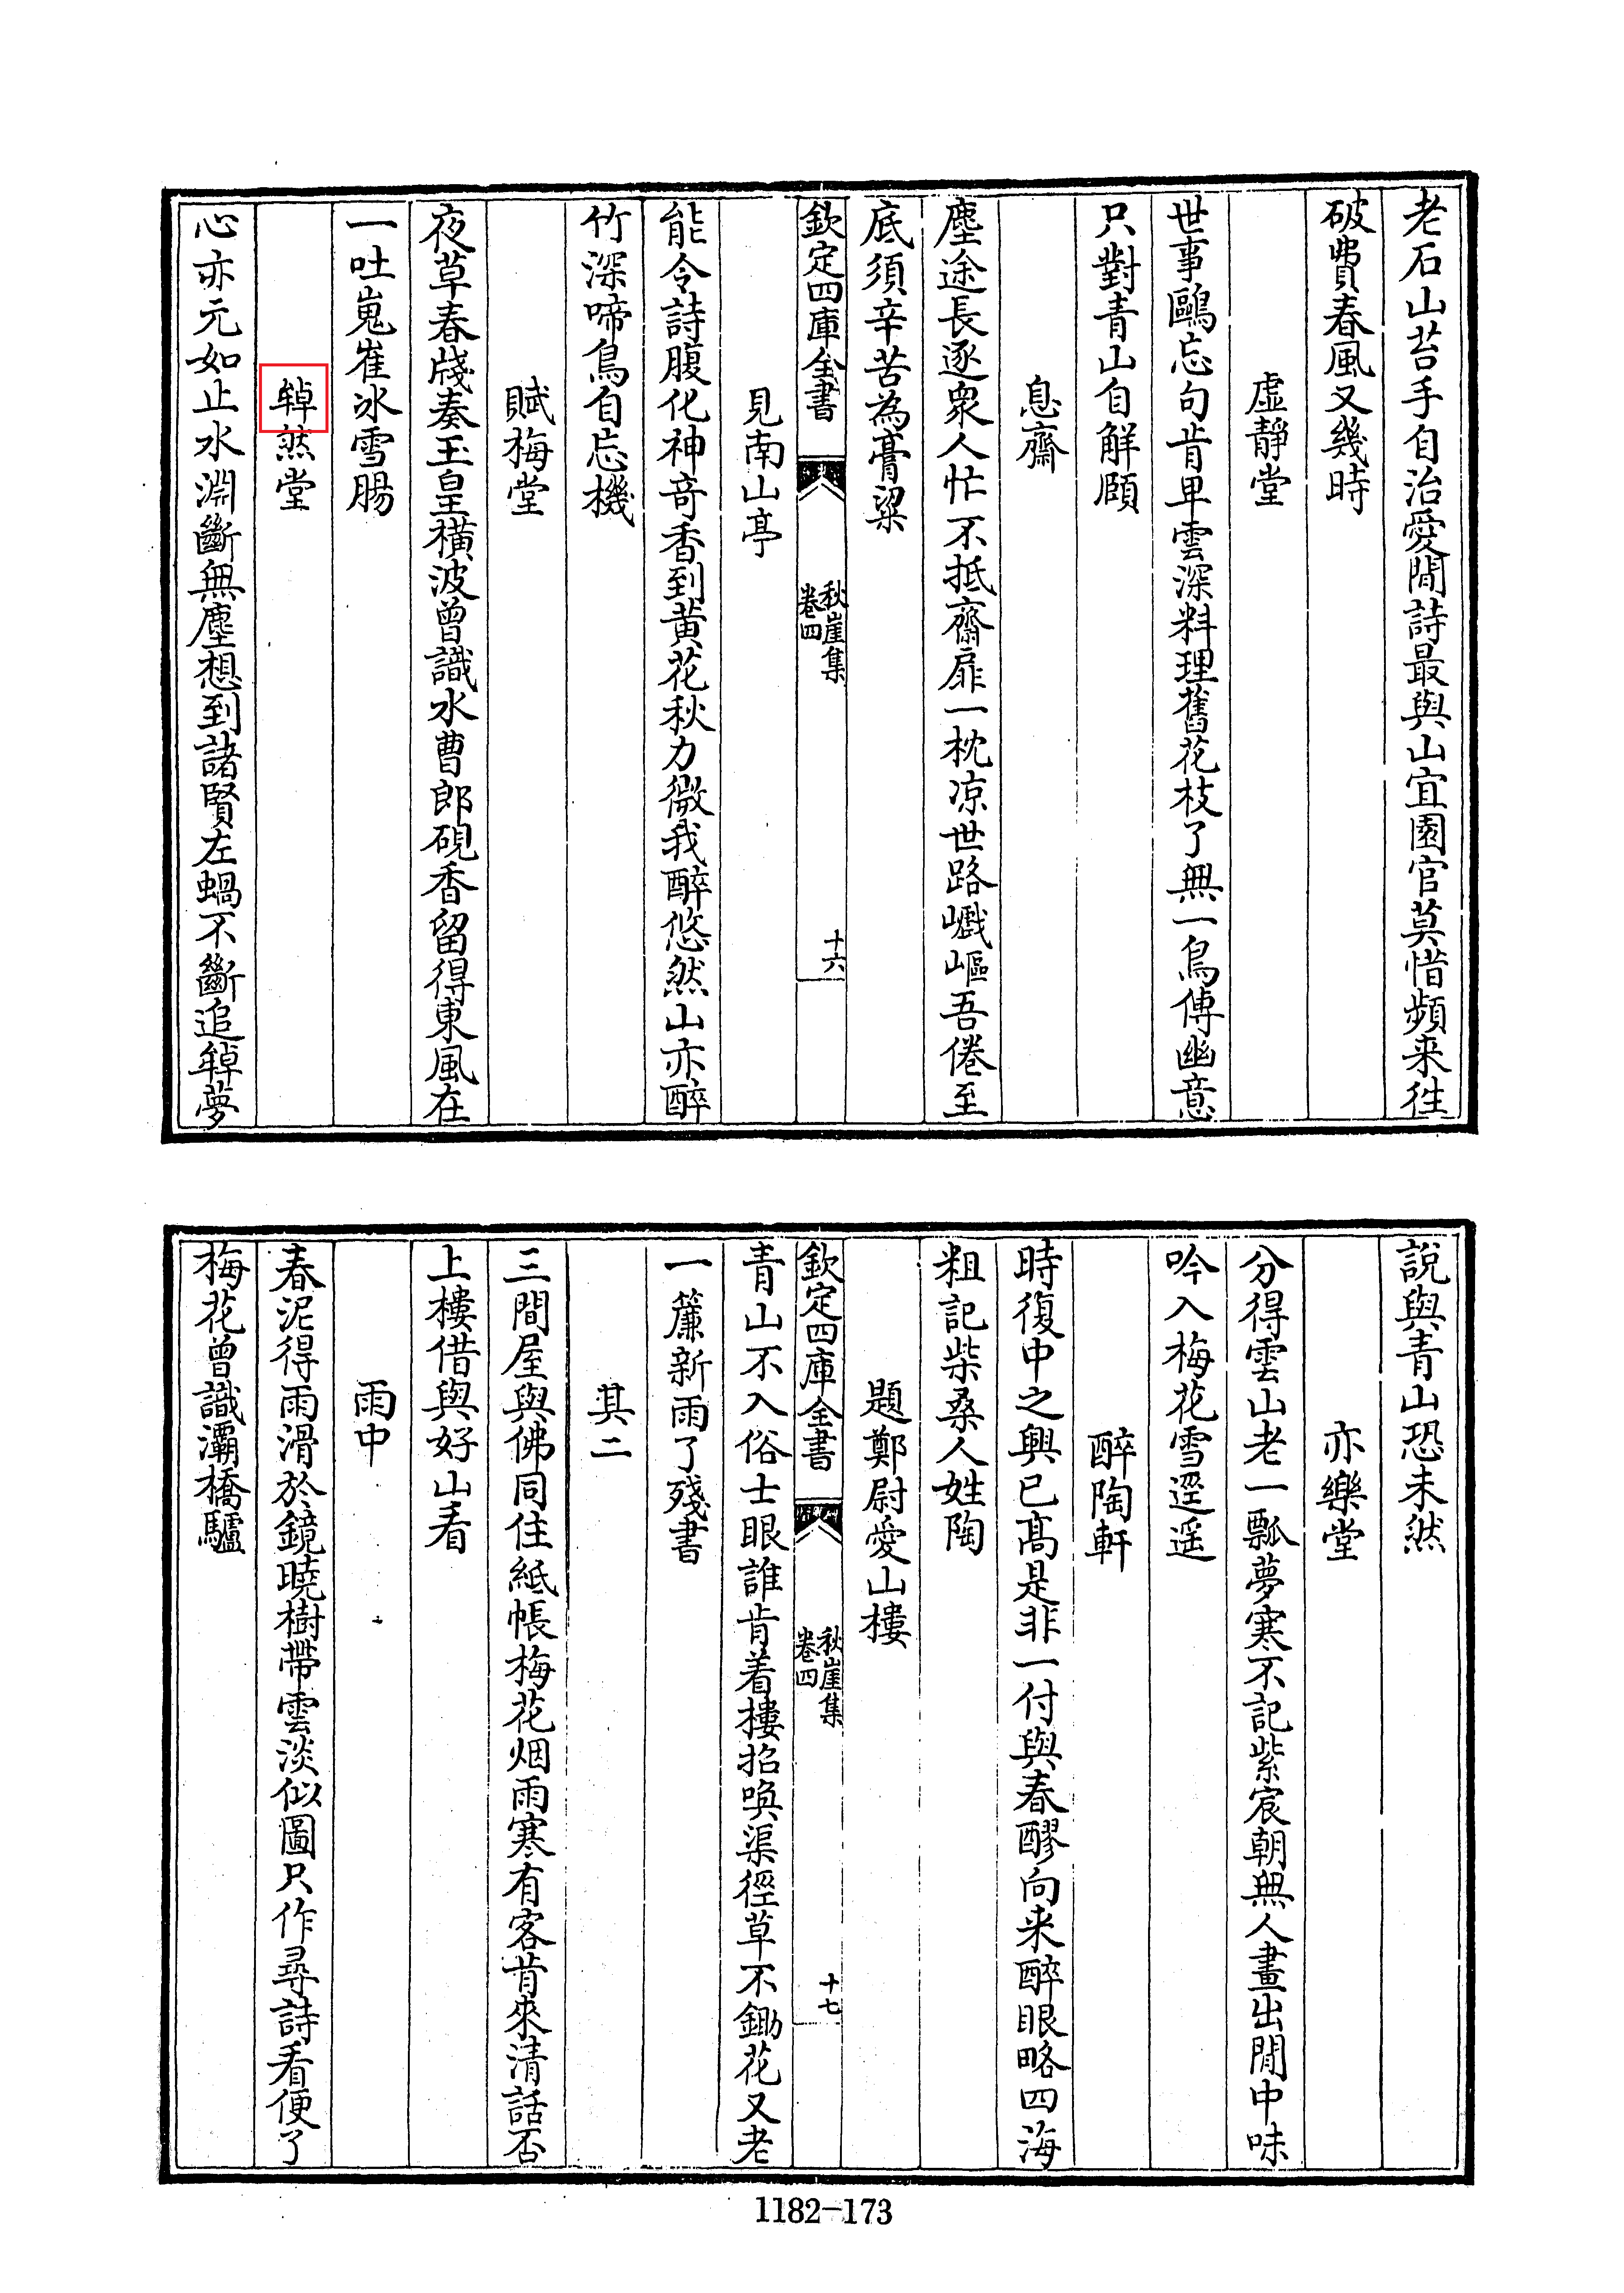 老石山苔手自治愛閒詩最與山宜園官莫惜頻来徃
破費春風又幾時
虚靜堂
世事鷗忘句肯甲雲深料理舊花枝了無一鳥傳幽意
只對青山自解頤
息齋
塵途長逐衆人忙不抵齋扉一枕凉世路巇嶇吾倦至
底須辛苦為膏粱
欽定四庫全書
秋崖集
卷四
十六
見南山亭
能令詩腹化神竒香到黄花秋力微我醉悠然山亦醉
竹深啼鳥自忘機
賦梅堂
夜草春牋奏玉皇横波曾識水曹郎硯香留得東風在
一吐嵬崔冰雪腸
然堂
心亦元如止水淵斷無塵想到諸賢左蝸不斷追夢
說與青山恐未然
亦樂堂
分得雲山老一瓢夢寒不記紫宸朝無人畫出閒中味
吟入梅花雪逕遥
醉陶軒
時復中之興已髙是非一付與春醪向来醉眼略四海
粗記柴桑人姓陶
題鄭尉愛山樓
欽定四庫全書
秋崖集
卷四
十七
青山不入俗士眼誰肯着樓招喚渠徑草不鋤花又老
一簾新雨了殘書
其二
三間屋與佛同住紙帳梅花烟雨寒有客肯來清話否
上樓借與好山看
雨中
春泥得雨滑於鏡曉樹帶雲淡似圖只作尋詩看便了
梅花曾識灞橋驢
1182-173